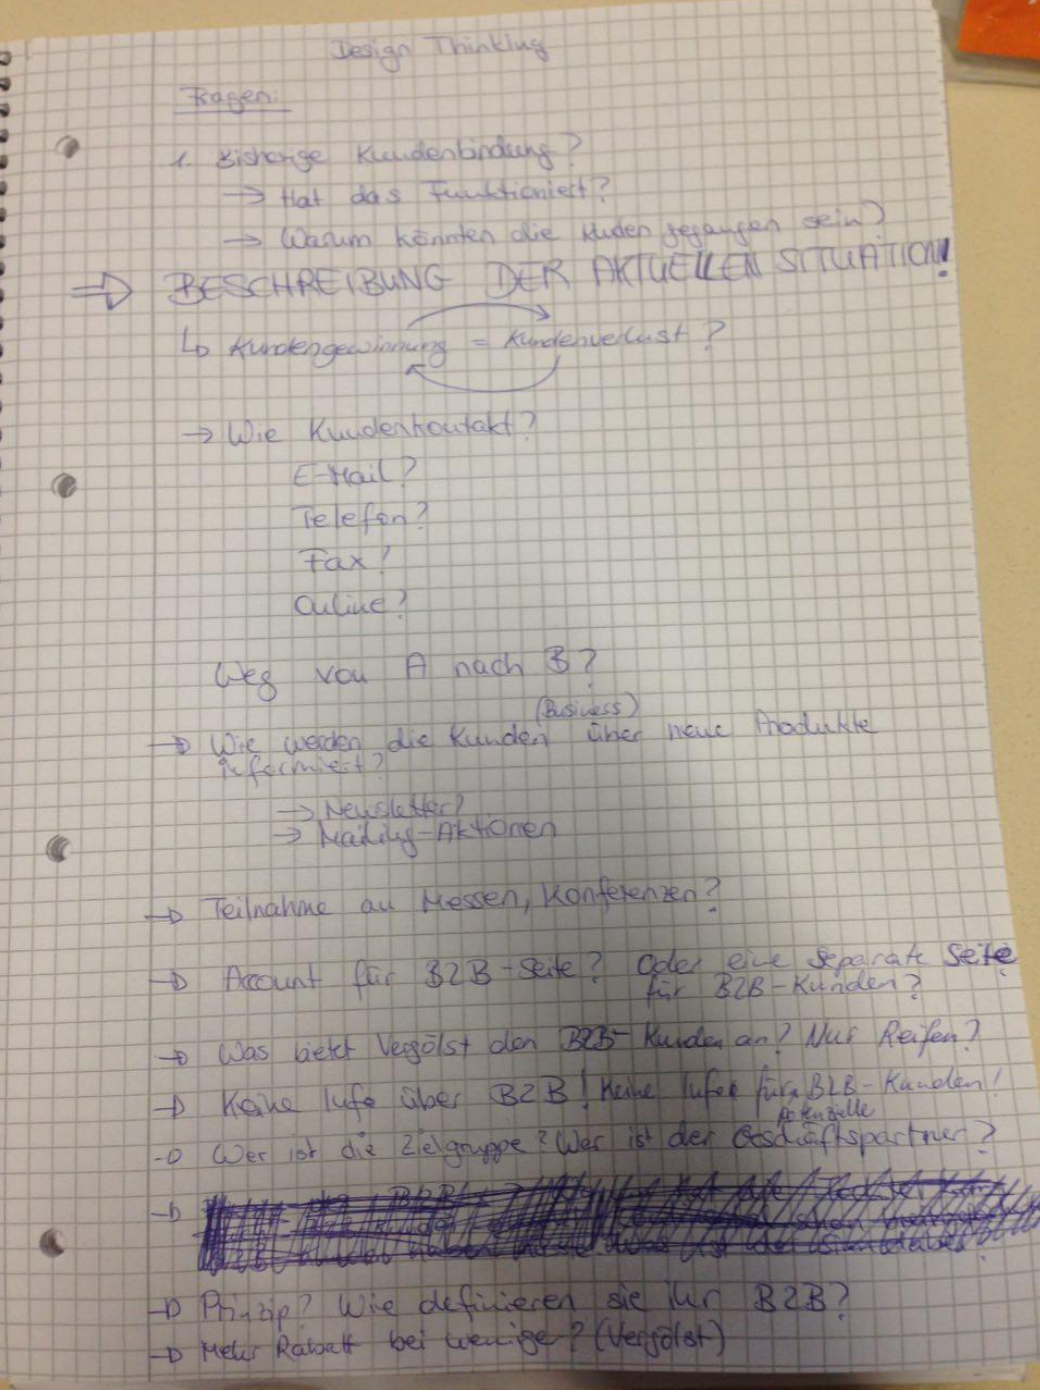 Design Thinking
Fragen:
1. Bisherige Kundenbindung?
→ Hat das Funktioniert?
→ Warum könnten die Kuden gegangen sein?
⇒ BESCHREIBUNG DER AKTUELLEN SITUATION!
↳ Kundengewinnung = Kundenverlust?
→ Wie Kundenkontakt?
E-Mail?
Telefon?
Fax?
Online?
Weg von A nach B?
(Business)
→ Wie werden die Kunden über neue Produkte
informiert?
→ Newsletter?
→ Mailing-Aktionen
→ Teilnahme an Messen, Konferenzen?
→ Account für B2B-Seite? Oder eine separate Seite
für B2B-Kunden?
→ Was bietet Vergölst den B2B-Kunden an? Nur Reifen?
→ Keine Info über B2B! Keine Infos für B2B-Kunden!
potenzielle
→ Wer ist die Zielgruppe? Wer ist der Geschäftspartner?
→ Prinzip? Wie definieren sie ihr B2B?
→ Mehr Rabatt bei wenige? (Vergölst)